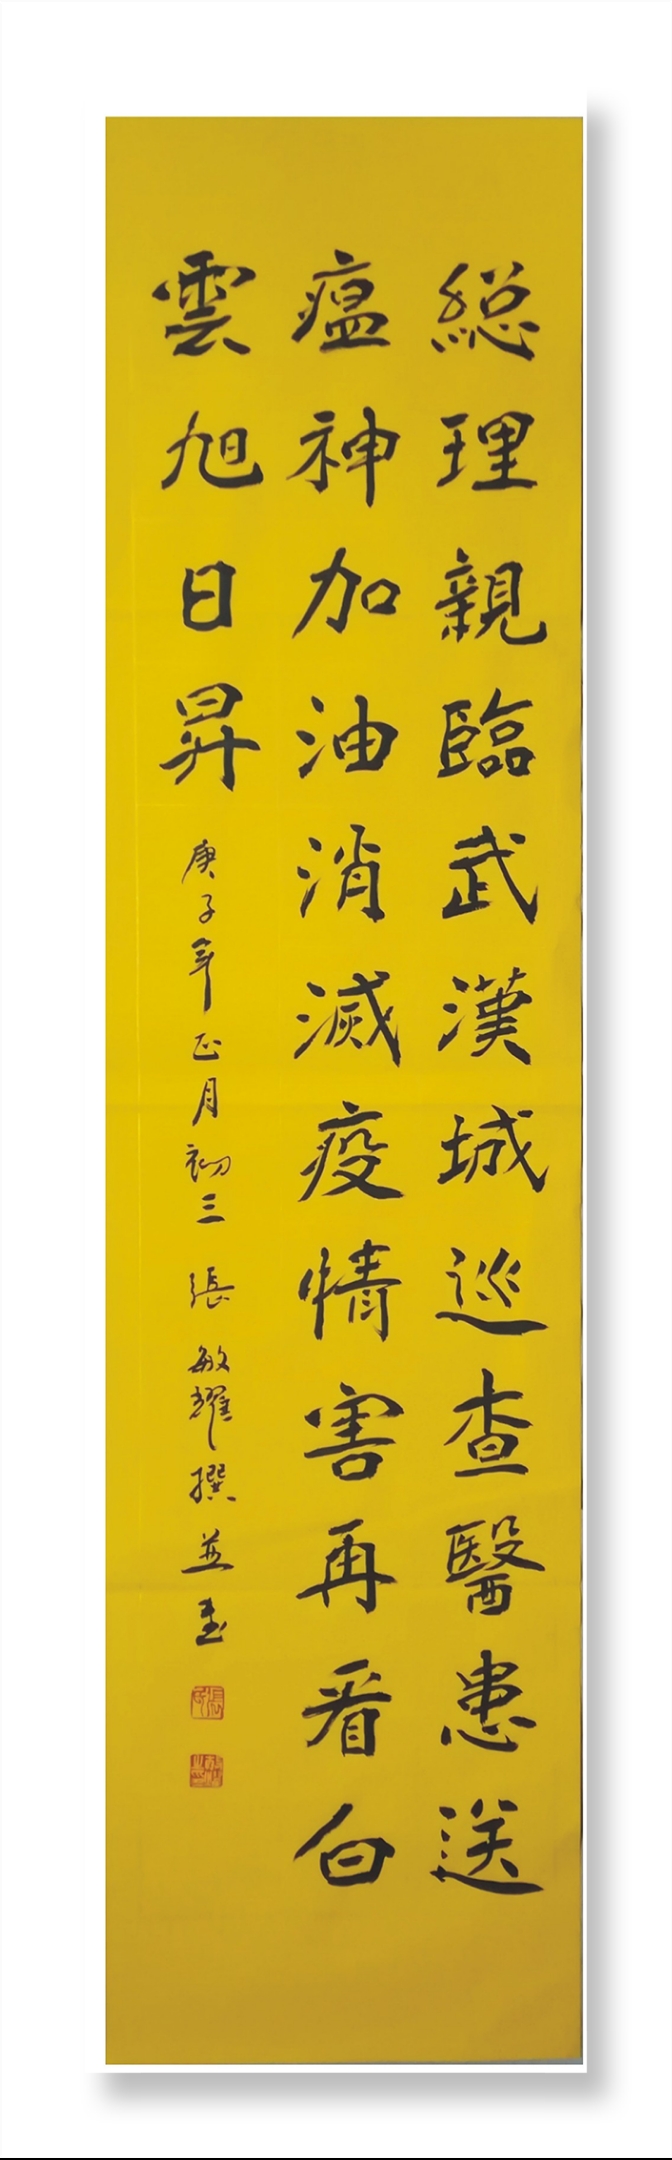 総理親臨武漢城巡查醫患送
瘟神加油消滅疫情害再看白
雲旭日昇
庚子年正月初三 張敏耀撰並書